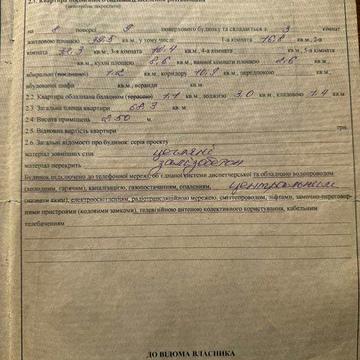 (непотрібне закреслити)
на поверсі 9 поверхового будинку та складається з 3 кімнат
житловою площею кв.м, у тому числі: 1-а кімната 16.8 кв.м., 2-а
кімната кв.м., 3-я кімната 10.4 кв.м., 4-а кімната кв.м., 5-я кімната
кв.м., кухні площею 8.6 кв.м., ванної кімнати площею 2.6 кв.м.,
вбиральні 1.2 кв.м., коридору 10.8 кв.м., передпокою кв.м.,
вбудованої шафи кв.м., веранди кв.м
2.2. Квартира обладнана балконом (терасою) 1.1 кв.м., лоджією 3.0 кв.м., кладовою 1.4 кв.м.
2.3. Загальна площа квартири кв.м
2.4. Висота приміщень 2.50 м.
2.5. Відновна вартість квартири грн.
2.6. Загальні відомості про будинок: серія проекту
матеріал зовнішніх стін цегляні
матеріал перекрить залізобетон
Будинок підключено до телефонної мережі, об'єднаної системи диспетчерської та обладнано водопроводом
(холодним, гарячим), каналізацією, газопостачанням, опаленням, центральним
(назвати яким), електроосвітленням, радіотрансляційною мережею, сміттєпроводом, ліфтами, замочно-переговор-
ними пристроями (кодовими замками), телевізійною антеною колективного користування, кабельним
телебаченням
ДО ВІДОМА ВЛАСНИКА